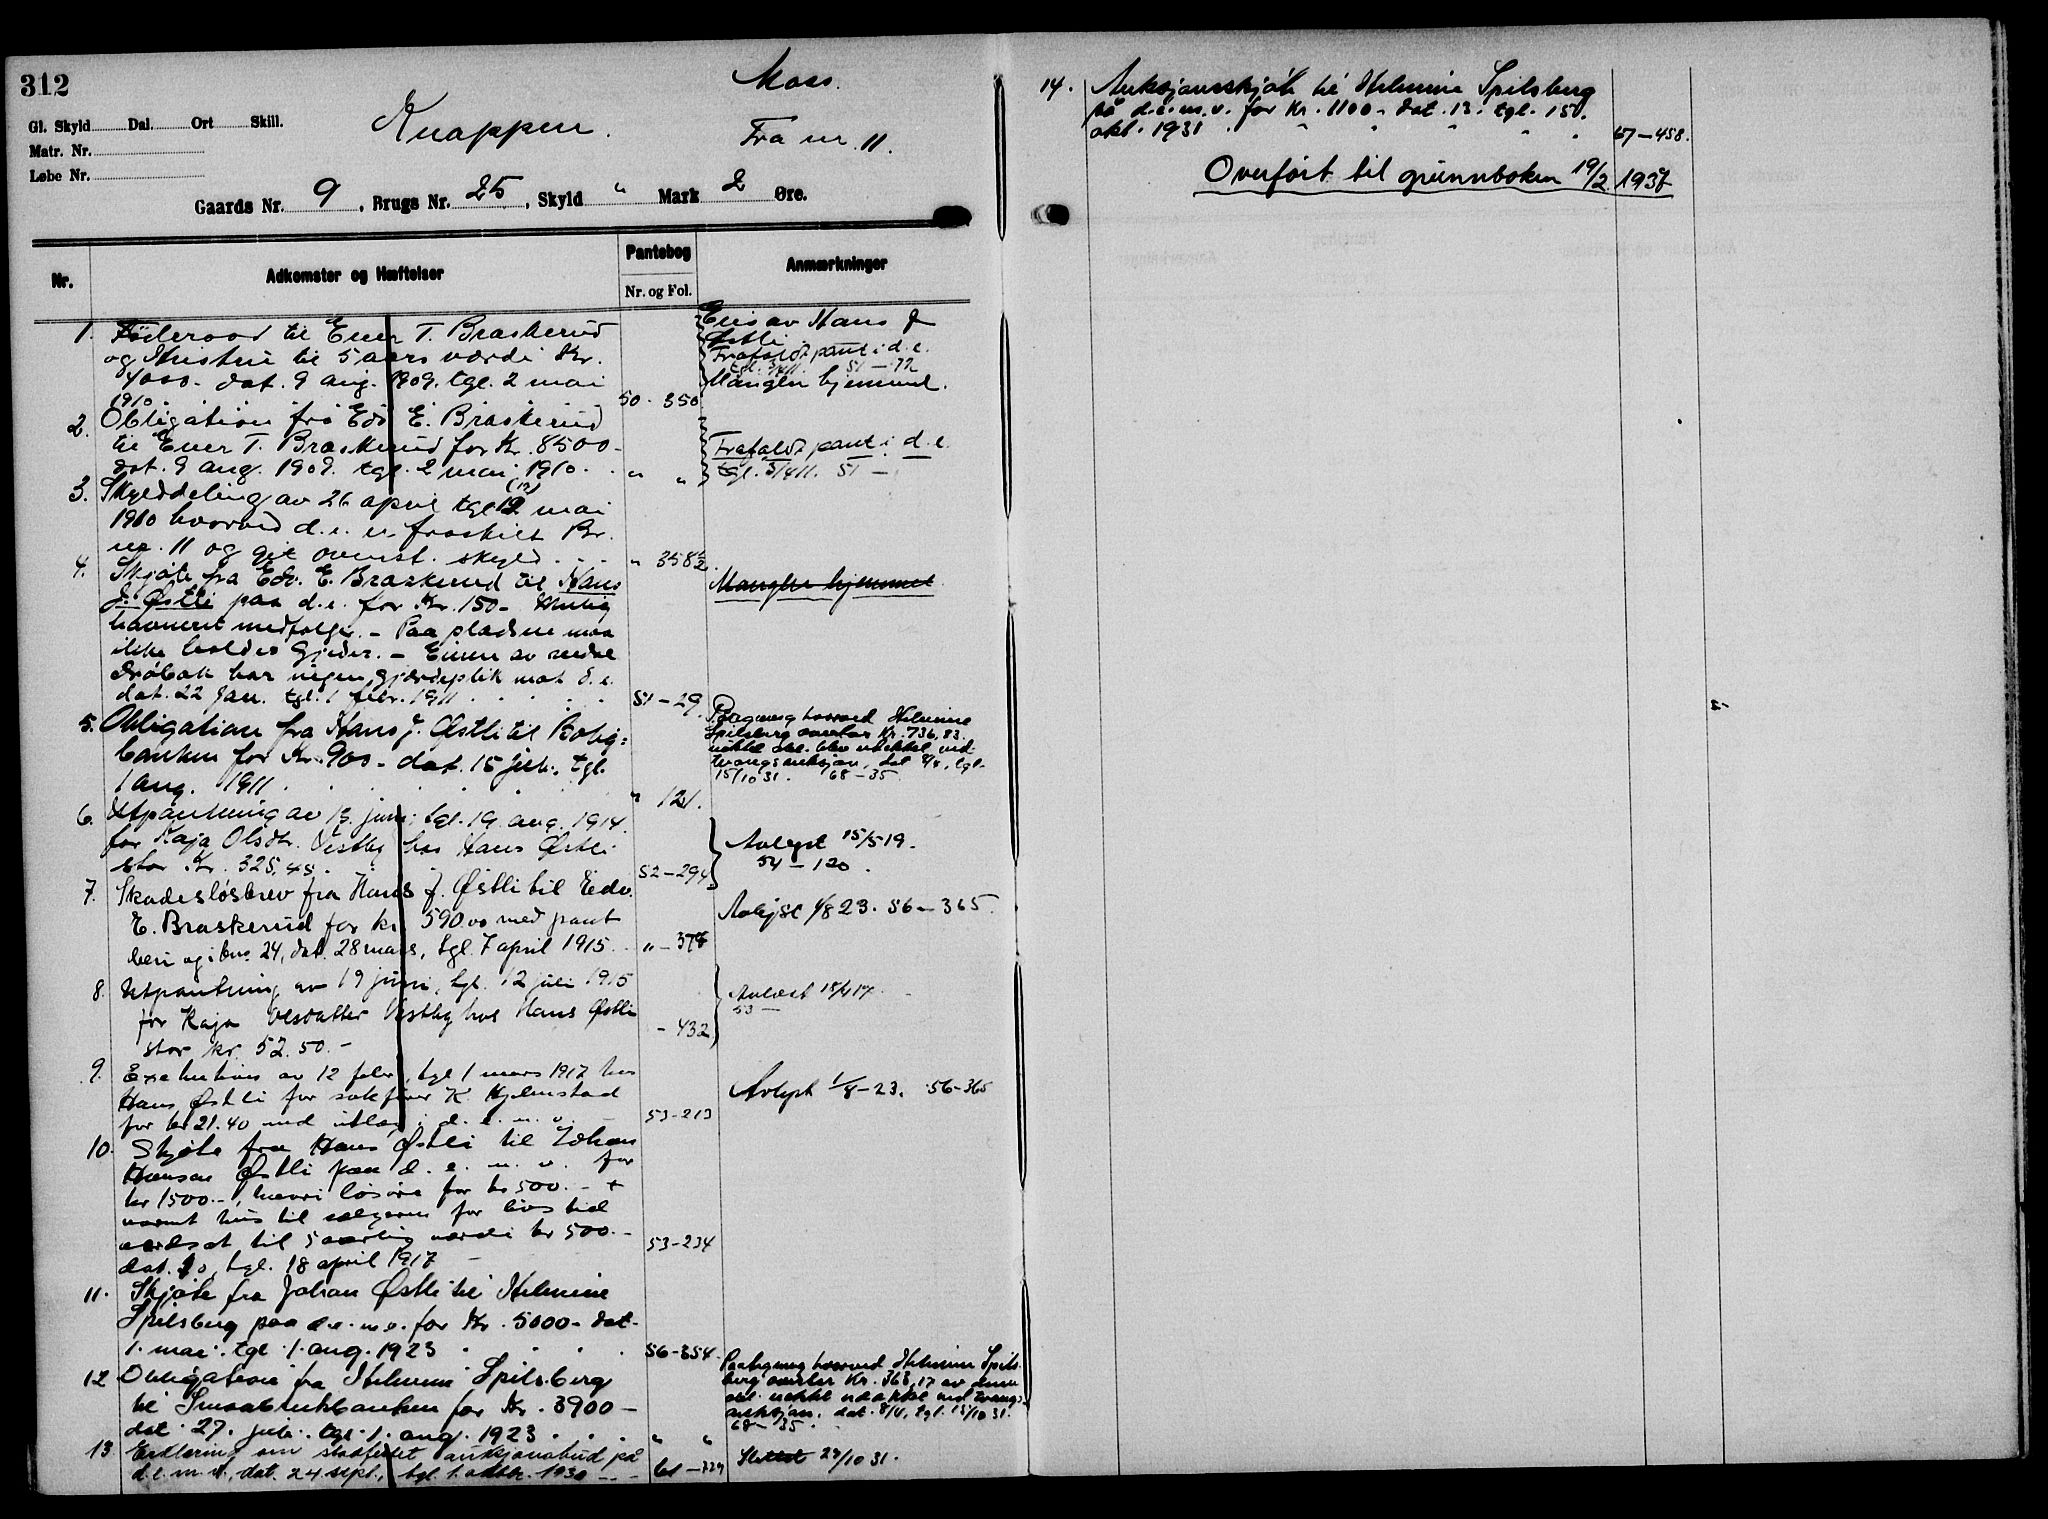 312
Moss.
Gl. Skyld Dal. Ort Skill.
Matr. Nr.
Løbe Nr.
Knappen.
Fra nr. 11.
Gaards Nr. 9, Brugs Nr. 25, Skyld " Mark 2 Øre.
Nr.
Adkomster og Hæftelser
Pantebog
Nr. og Fol.
Anmærkninger
1. Föderaad til Ener T. Braskerud
og til 5 aars værdi Kr.
4000 - dat. 9 aug. 1909. tgl. 2 mai
1910. 50 - 350
Eies av Hans J
Østli
Frafaldt pant i d.e.
tgl. 3/4 11. 51 - 72
Mangler hjemmel.
2. Obligation fra Edv. E. Braskerud
til Ener T. Braskerud for Kr. 8500 -
dat. 9 aug. 1909. tgl. 2 mai 1910. " "
Frafaldt pant i d.e.
tgl. 3/4 11. 51 -
3. Skylddeling av 26 april tgl 12 (12) mai
1910 hvorved d.e. er fraskilt Br.
nr. 11 og git ovenst. skyld. " 358 1/2.
4. Skjøte fra Edv. E. Braskerud til Hans
J. Østli paa d.e. for Kr. 150 -
havneret medfølger. - Paa pladsene maa
ikke holdes Gjeder. - Eieren av
Drøbak har ingen gjerdeplikt mot d.e.
dat. 22 jan. tgl. 1 febr. 1911 51 - 29.
Mangler hjemmel
5. Obligation fra Hans J. Østli til Bolig=
banken for Kr. 900 - dat. 15 juli, tgl.
1 aug. 1911 " 121.
Paategning hvorved Helmine
Spilsberg overtar Kr. 736,83.
hvilket obl. blev udækket ved
tvangsauksjon, dat 8/4, tgl.
15/10 31. 68 - 35
6. Utpantning av 13. juni, tgl. 19. aug. 1914.
for Kaja Olsdtr. Vestby hos Hans Østli
stor Kr. 325,45. 52 - 294
Avlyst 15/5 19.
54 - 120.
7. Skadesløsbrev fra Hans J. Østli til Edv.
E. Braskerud for kr. 590.00 med pant
heri og i bnr. 24, dat. 28 mars, tgl. 7 april 1915. " - 378
Avlyst 1/8 23. 56 - 365.
8. Utpantning av 19 juni, tgl. 12 juli 1915
for Kaja Olsdatter Vestby hos Hans Østli
stor kr. 52.50. - - 432
Avlæst 18/4 17.
53 -
9. Exekution av 12 febr, tgl 1 mars 1917 hos
Hans Østli for sakfører K Hjelmstad
for kr 21.40 med utlæg i d. e. m. v. 53 - 213
Avlyst 1/8 - 23. 56 - 365
10. Skjøte fra Hans Østli til Johan
Hansen Østli paa d. e. m. v. for
kr 1500. -, hvori løsøre for kr 500. - +
varmt hus til sælgeren for livstid
værdsat til 5 aarlig værdi kr 500. -
dat. 10, tgl. 18 april 1917 53 - 234
11. Skjøte fra Johan Østli til Helmine
Spilsberg paa d.e.m.v. for Kr. 5000 - dat.
1. mai. tgl. 1. aug. 1923 56 - 354.
12 Obligation fra Helmine Spilsberg
til Smaabrukbanken for Kr. 3900 -
dat. 27. juli. tgl. 1. aug. 1923 " "
Paategning hvorved Helmine Spils
berg overtar Kr. 363,17 av denne
obl. hvilket udækket ved tvangs
auksjon. dat. 8/4, tgl. 15/10 31.
68 - 35.
13. Erklæring om stadfestet auksjonsbud på
d.e.m.v., dat. 24 sept., tgl. 1. oktbr. 1930 61 - 229
Slettet 29/10 31.
14. Auksjonsskjöte til Helmine Spilsberg
på d.e.m.v. for Kr. 1100 - dat. 13. tgl. 15.
okt. 1931 67 - 458.
Overført til grunnboken 19/2 1937